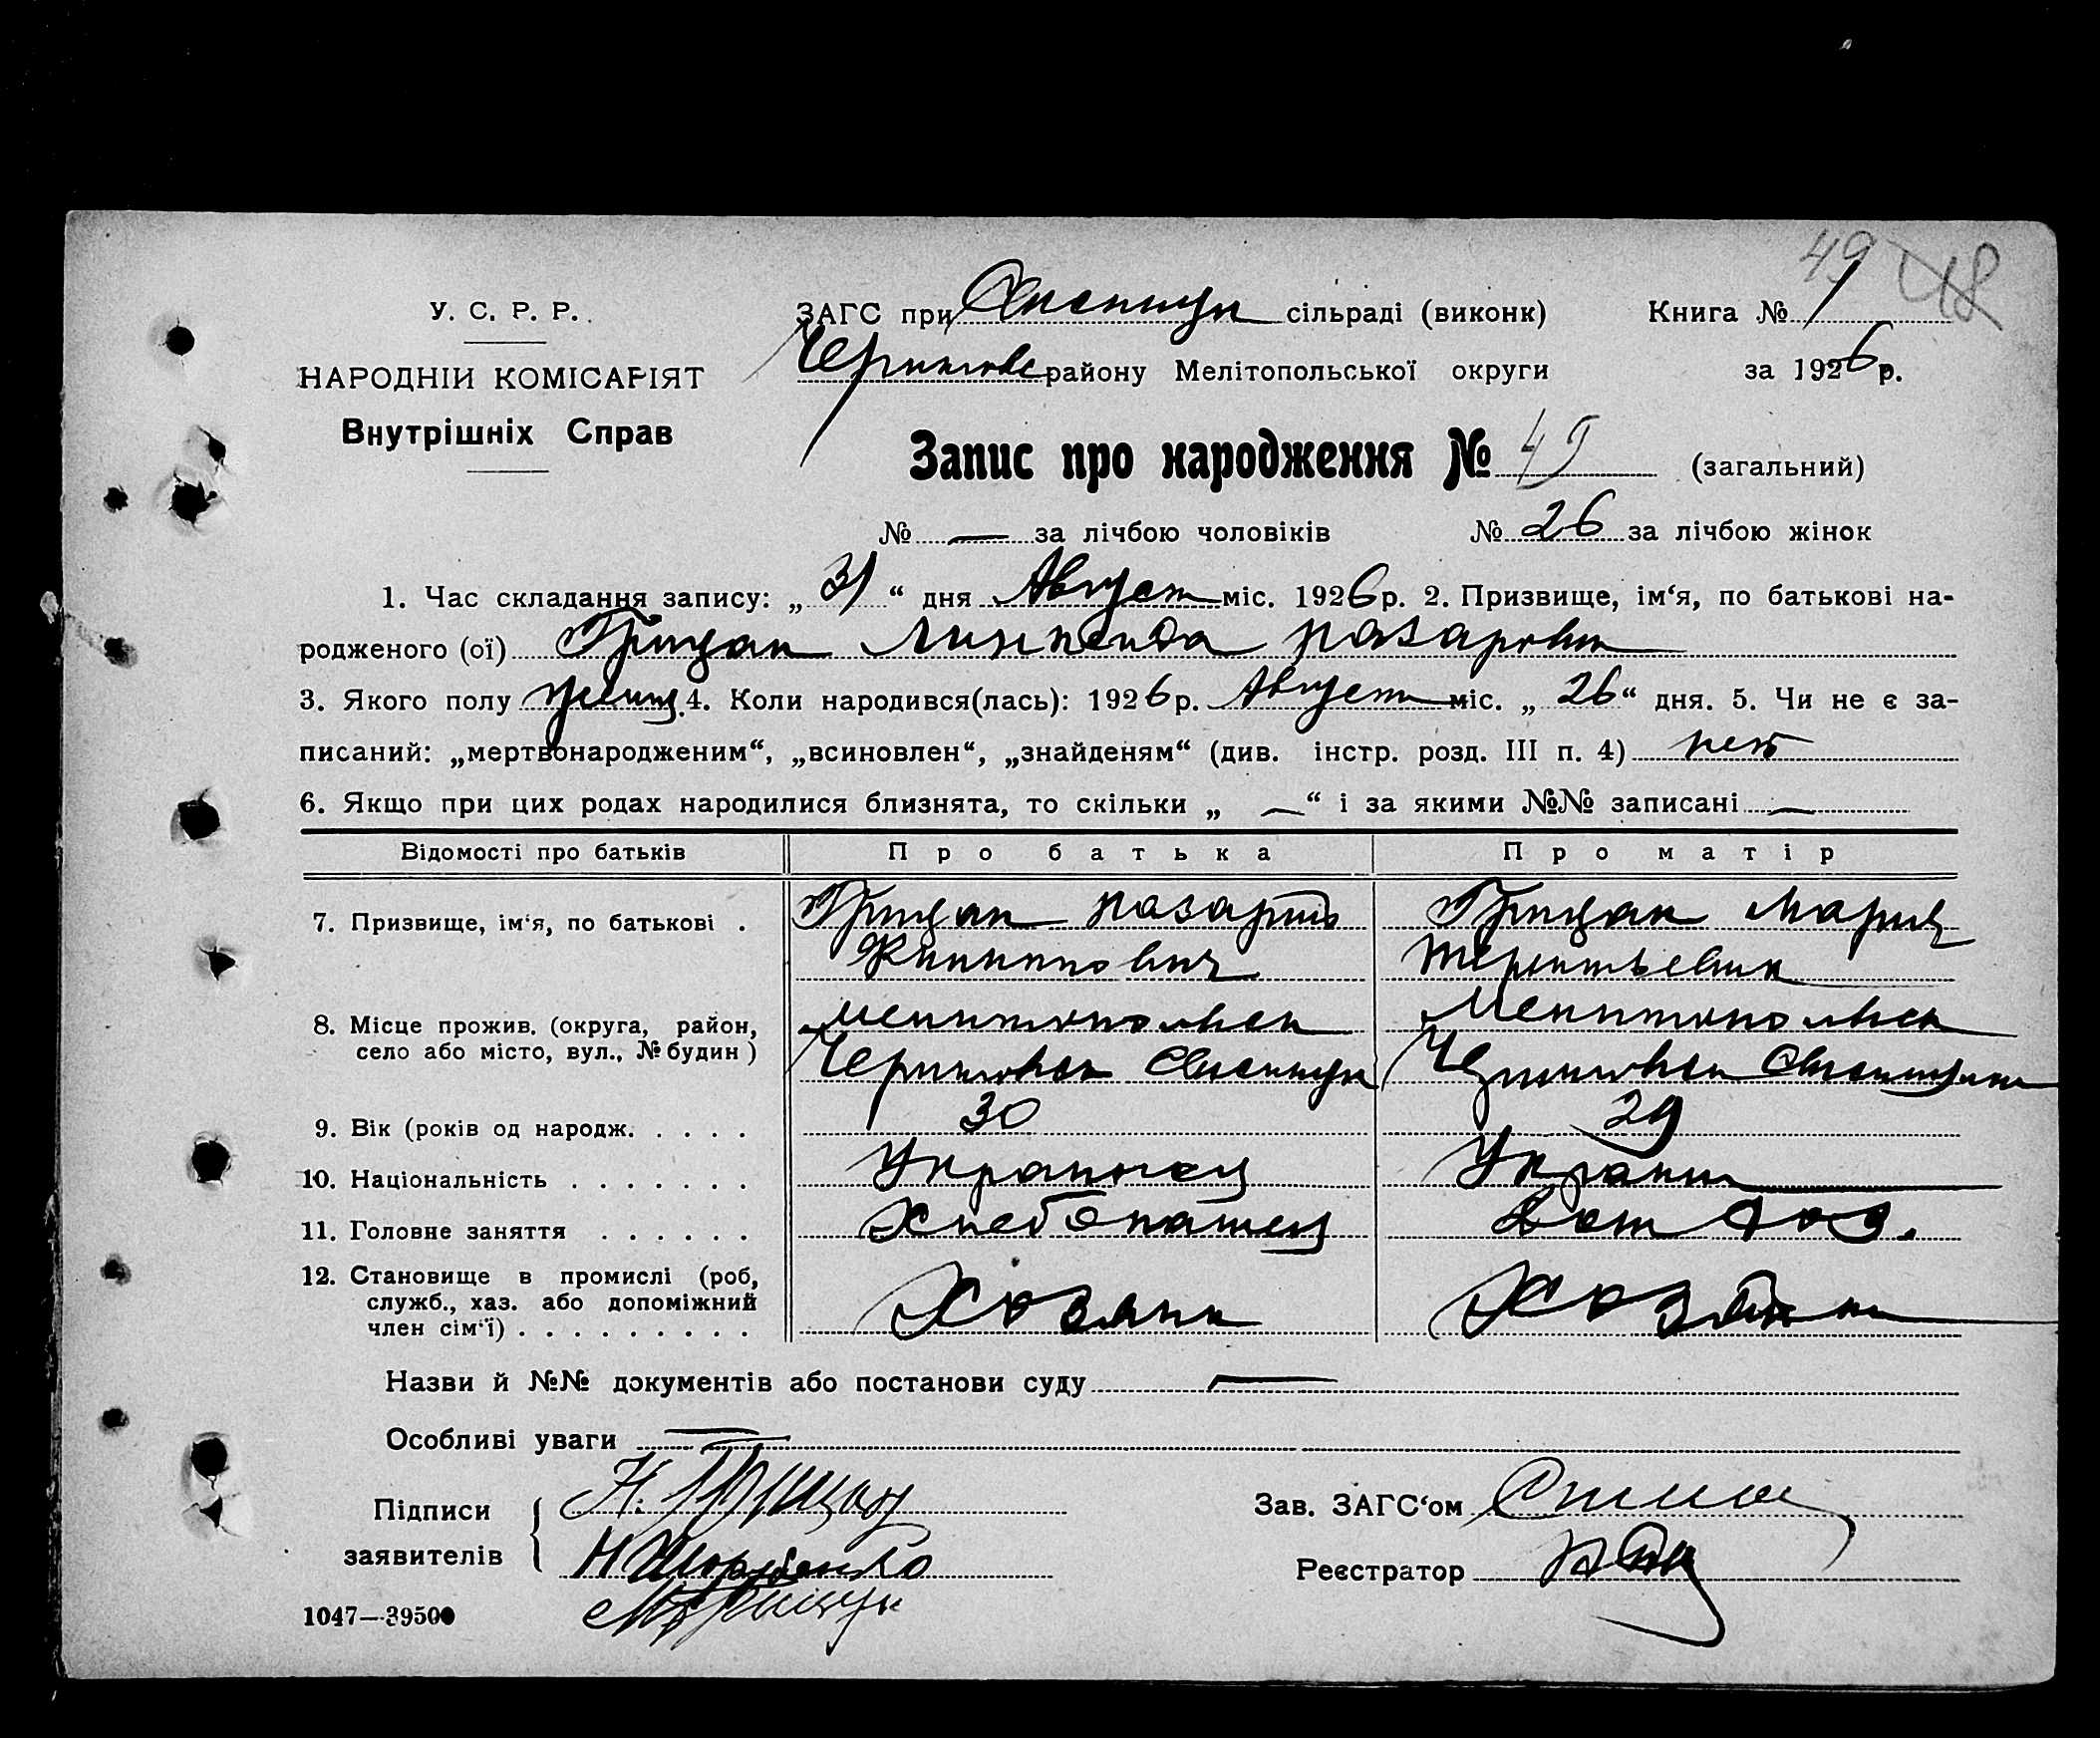 49 48
У. С. Р. Р.
НАРОДНІЙ КОМІСАРІЯТ
Внутрішніх Справ
ЗАГС при сільраді (виконк)
району Мелітопольської округи
Книга № 1
за 1926 р.
Запис про народження № 49 (загальний)
№ — за лічбою чоловіків № 26 за лічбою жінок
1. Час складання запису: „31“ дня Август міс. 1926 р. 2. Призвище, ім‘я, по батькові на-
родженого (ої) Грицан
3. Якого полу женщ. 4. Коли народився(лась): 1926 р. Август міс. „26“ дня. 5. Чи не є за-
писаний: „мертвонародженим“, „всиновлен“, „знайденям“ (див. інстр. розд. III п. 4) нет
6. Якщо при цих родах народилися близнята, то скільки „ — “ і за якими №№ записані —
Відомості про батьків Про батька Про матір
7. Призвище, ім‘я, по батькові . Грицан Назарий Грицан Мария
Филипович Терентьевна
8. Місце прожив. (округа, район, Мелитопольск Мелитопольск
село або місто, вул., № будин)
9. Вік (років од народж. . . . . 30 29
10. Національність . . . . . . . Украинец Украин
11. Головне заняття . . . . . . Хлебопашец Дом хоз.
12. Становище в промислі (роб,
служб., хаз. або допоміжний
член сім‘ї) . . . . . . . . . Хозяин Хозяйка
Назви й №№ документів або постанови суду —
Особливі уваги —
Підписи
заявителів
Н. Грицан
Зав. ЗАГС‘ом
Реєстратор
1047—39500